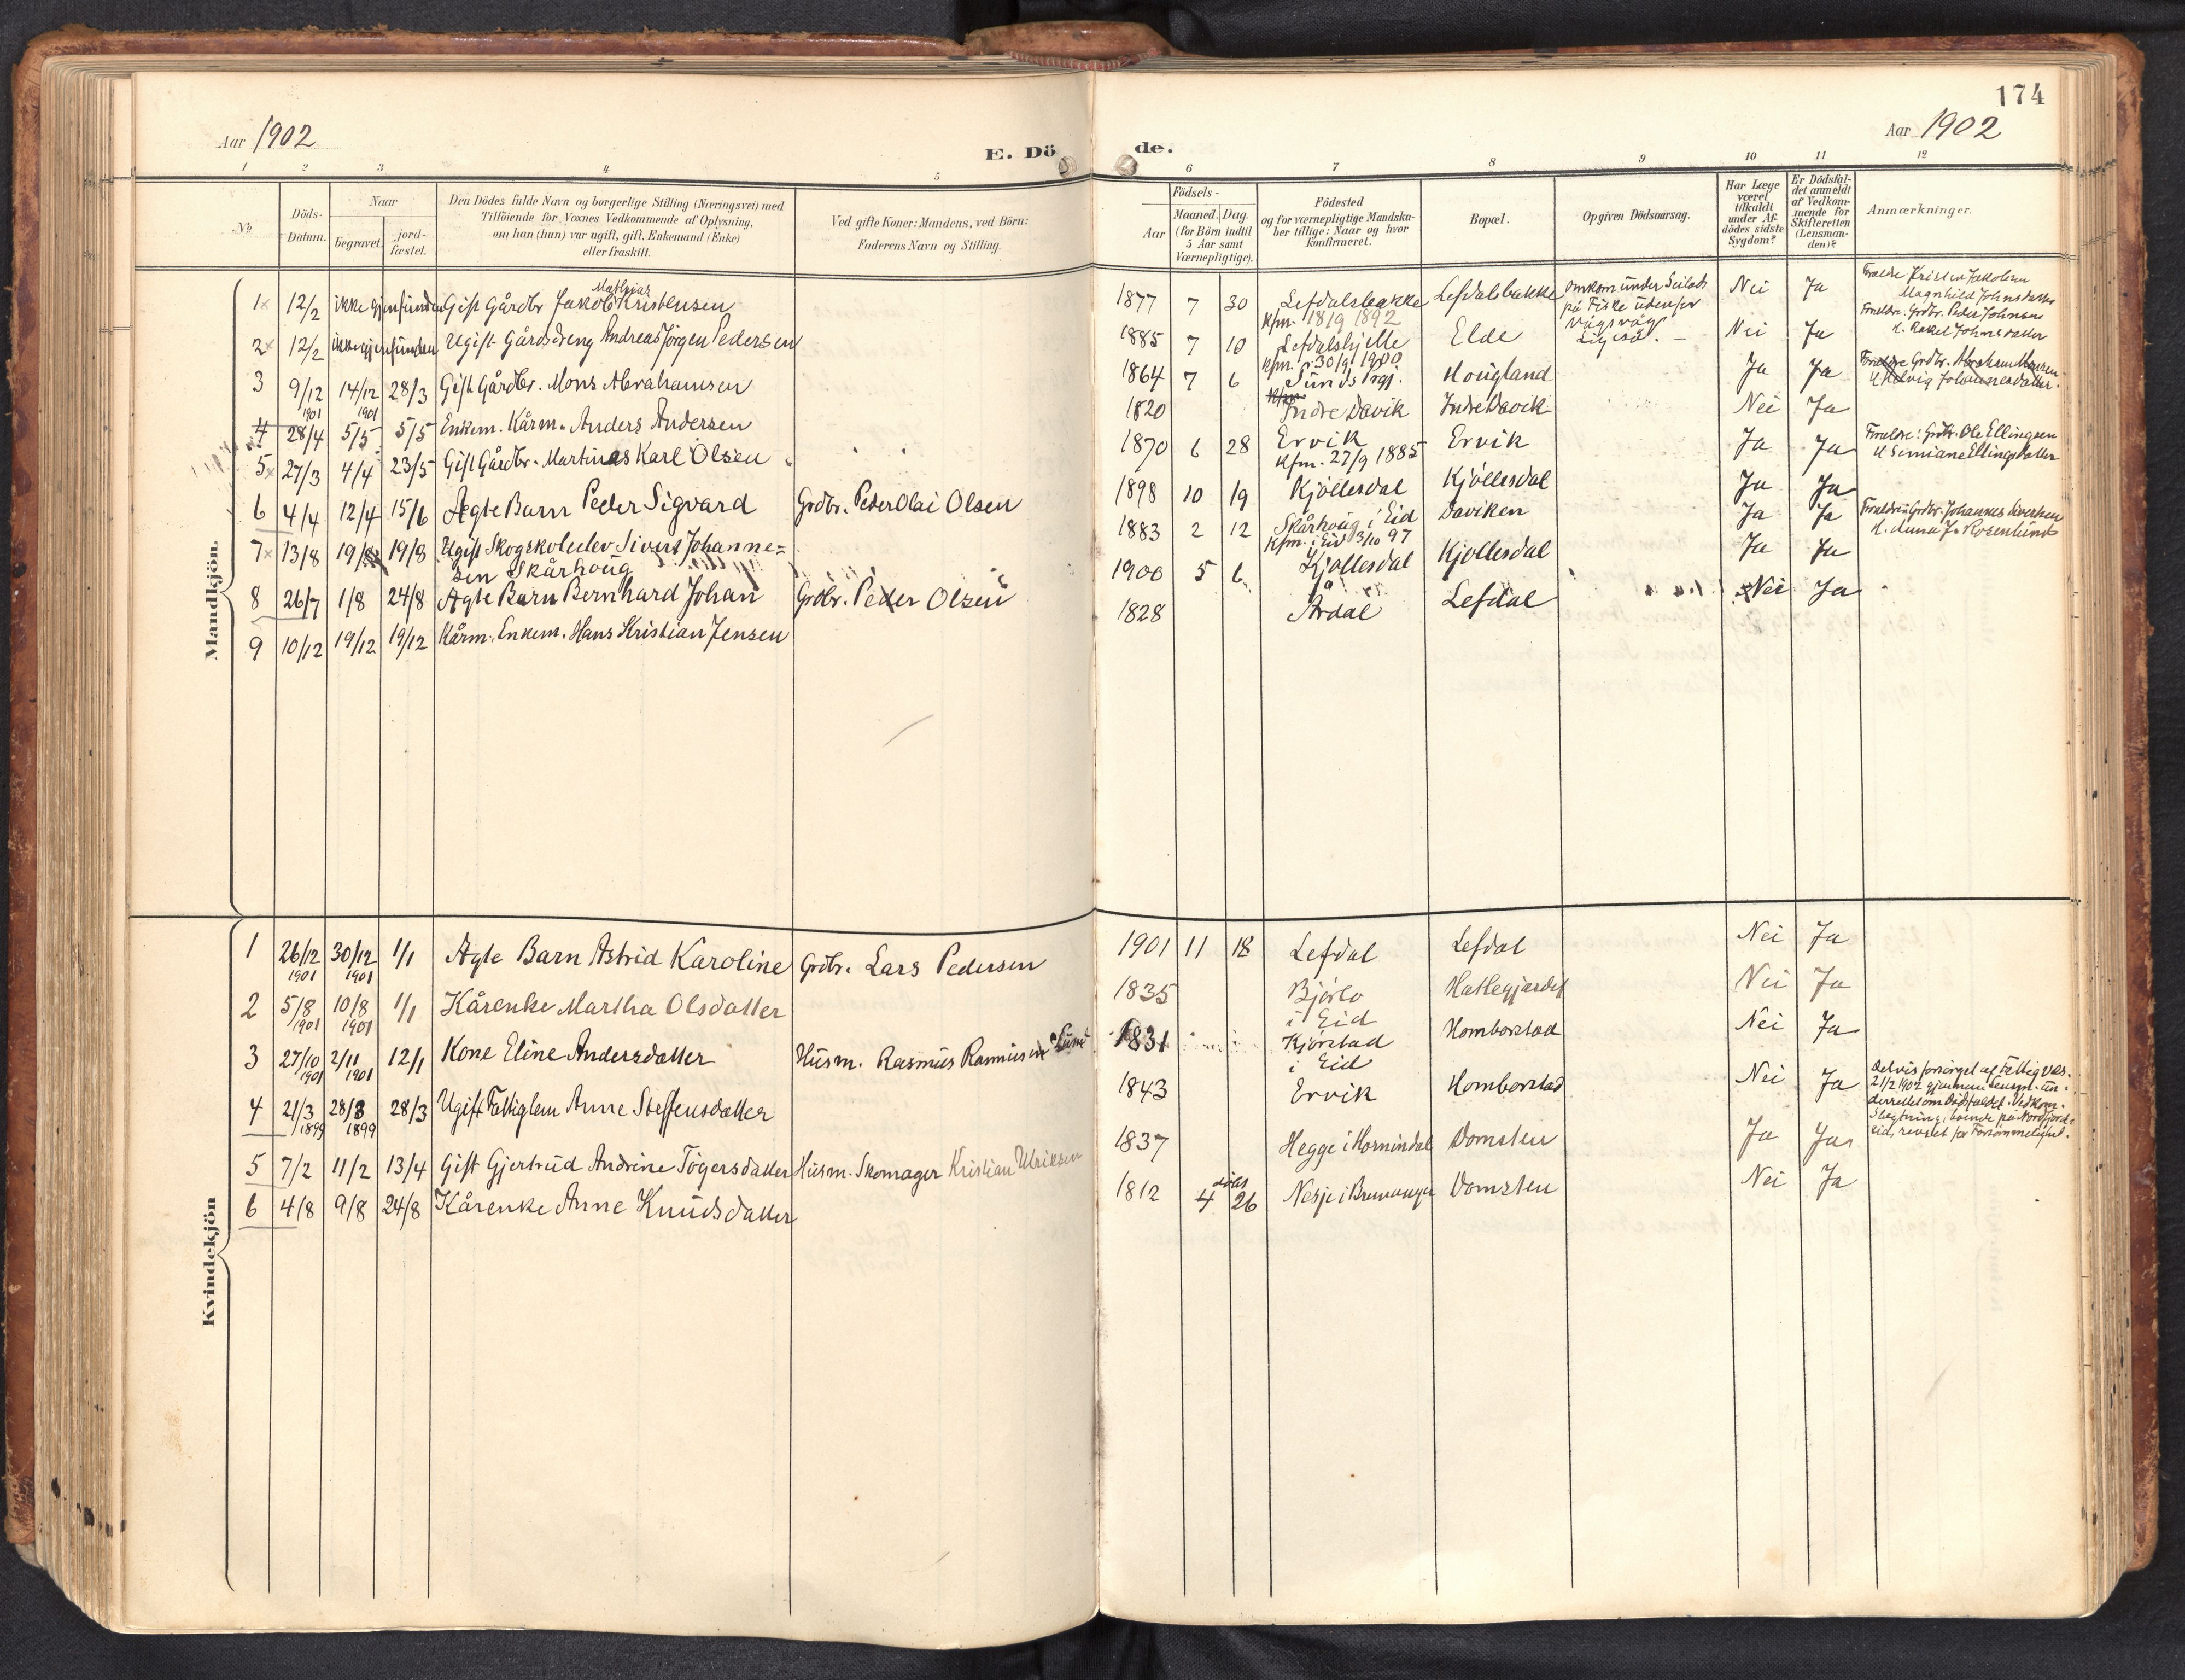 174
Aar 1902
E. Dö
de.
Aar 1902
1 2 3 4 5 6 7 8 9 10 11 12
No
Döds-Datum.
Naar
begravet.
jord-fæstet.
Den Dödes fulde Navn og borgerlige Stilling (Næringsvei) med
Tilföiende for Voxnes Vedkommende af Oplysning,
om han (hun) var ugift, gift, Enkemand (Enke)
eller fraskilt.
Ved gifte Koner: Mandens, ved Börn:
Faderens Navn og Stilling.
Födsels-
Aar
Maaned. Dag.
(for Börn indtil
5 Aar samt
Værnepligtige).
Födested
og for værnepligtige Mandska-
ber tillige: Naar og hvor
konfirmeret.
Bopæl.
Opgiven Dödsaarsag.
Har Læge
været
tilkaldt
under Af-
dödes sidste
Sygdom?
Er Dödsfal-
det anmeldt
af Vedkom-
mende for
Skifteretten
(Lensman-
den)?
Anmærkninger.
Mandkjön.
Mathias
1 12/2 ikke gjenfunden Gift Gårdbr Jakob Kristensen 1877 7 30 Lefdalsbakke Lefdalsbakke Omkom under Seilads Nei Ja Forældre Krister Jakobsen
Kfm. 18/9 1892 på Fiske udenfor Magnhild Johnsdatter
2 12/2 ikke gjenfunden Ugift Gårdsdreng Andreas Jörgen Pedersen 1885 7 10 Lefdalshjelle Elde Vågsvåg Nei Ja Forældre: Grdbr. Peder Johnsen
Kfm. 30/9 1900 Ligeså. — H. Rakel Johnsdatter
3 9/12 1901 14/12 1901 28/3 Gift Gårdbr. Mons Abrahamsen 1864 7 6 Sunds Prgj. Hougland Ja Ja Forældre Grdbr. Abraham Monsen
Kfm
4 28/4 5/5 5/5 Enkem. Kårm. Anders Andersen 1820 Indre Davik Indre Davik Nei Ja
5 27/3 4/4 23/5 Gift Gårdbr. Martines Karl Olsen 1870 6 28 Ervik Ervik Ja Ja Forældre: Grdbr. Ole Ellingsen
Kfm. 27/9 1885
6 4/4 12/4 15/6 Ægte Barn Peder Sigvard Grdbr. Peder Olai Olsen 1898 10 19 Kjöllesdal Kjöllesdal Ja Ja
7 13/8 19/8 19/8 Ugift Skogskoleelev Sivert Johanne= 1883 2 12 Skårhoug i Eid Daviken Ja Ja Forældre: Grdbr. Johannes Sivertsen
sen Skårhoug Kfm. i Eid 3/10 97 H. Anna J. Rosenlund
8 26/7 1/8 24/8 Ægte Barn Bernhard Johan Grdbr. Peder Olsen 1900 5 6 Kjöllesdal Kjöllesdal Ja Ja
9 10/12 19/12 19/12 Kårm. Enkem. Hans Kristian Jensen 1828 Årdal Lefdal Nei Ja
Kvindekjön
1 26/12 1901 30/12 1901 1/1 Ægte Barn Astrid Karoline Grdbr. Lars Pedersen 1901 11 18 Lefdal Lefdal Nei Ja
2 5/8 1901 10/8 1901 1/1 Kårenke Martha Olsdatter 1835 Bjórlo Hattegjærdet Nei Ja
i Eid
3 27/10 1901 2/11 1901 12/1 Kone Eline Andersdatter Husm. Rasmus Rasmusen 1831 Kjörstad Homborstad Nei Ja
i Eid
4 21/3 1899 28/3 1899 28/3 Ugift Fattiglem Anne Steffensdatter 1843 Ervik Homborstad Nei Ja Delvis forsörget af Fattigves.
21/2 1902 gjennem Lensm. un-
derrettet om Dödsfaldet. Vedkom.
Slegtning, boende på Nordfjord-
eid, for Forsömmelighed.
5 7/2 11/2 13/4 Gift Gjertrud Andrine Tögersdatter Husm. Skomager Kristian Ulriksen 1837 Hegge i Hornindal Domsten Ja Ja
6 4/8 9/8 24/8 Kårenke Anne Knudsdatter 1812 4 26 Nesje i Bremanger Domsten Nei Ja